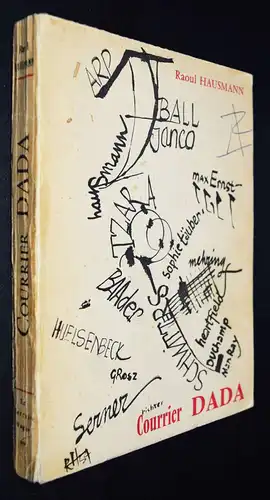 Raoul HAUSMANN
COURRIER DADA
Raoul HAUSMANN
ARP
BALL
Janco
hausmann
TZARA
max Ernst
sophie täuber
BAADER
mehring
SCHWITTERS
heartfield
Duchamp
Man Ray
HUELSENBECK
GROSZ
Serner
richter
Courrier DADA
RHSA